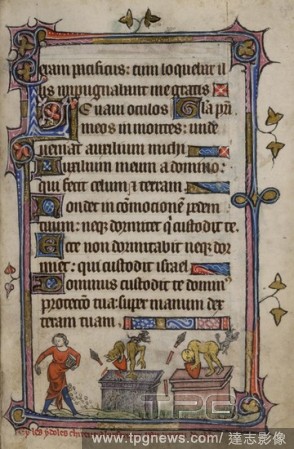 eram pacificus: cum loquebar il
lis inpugnabant me gratis
Levavi oculos Gla pri
meos in montes: unde
veniat auxilium michi
Auxilium meum a domino:
qui fecit celum & terram
Non det in cōmocionē pedem
tuum: neqz dormitet q̄ custodit te
Ecce non dormitabit neqz dor
miet: qui custodit israel
Dominus custodit te domin9
protectio tua: super manum dex
teram tuam
TPG
www.tpgnews.com/達志影像